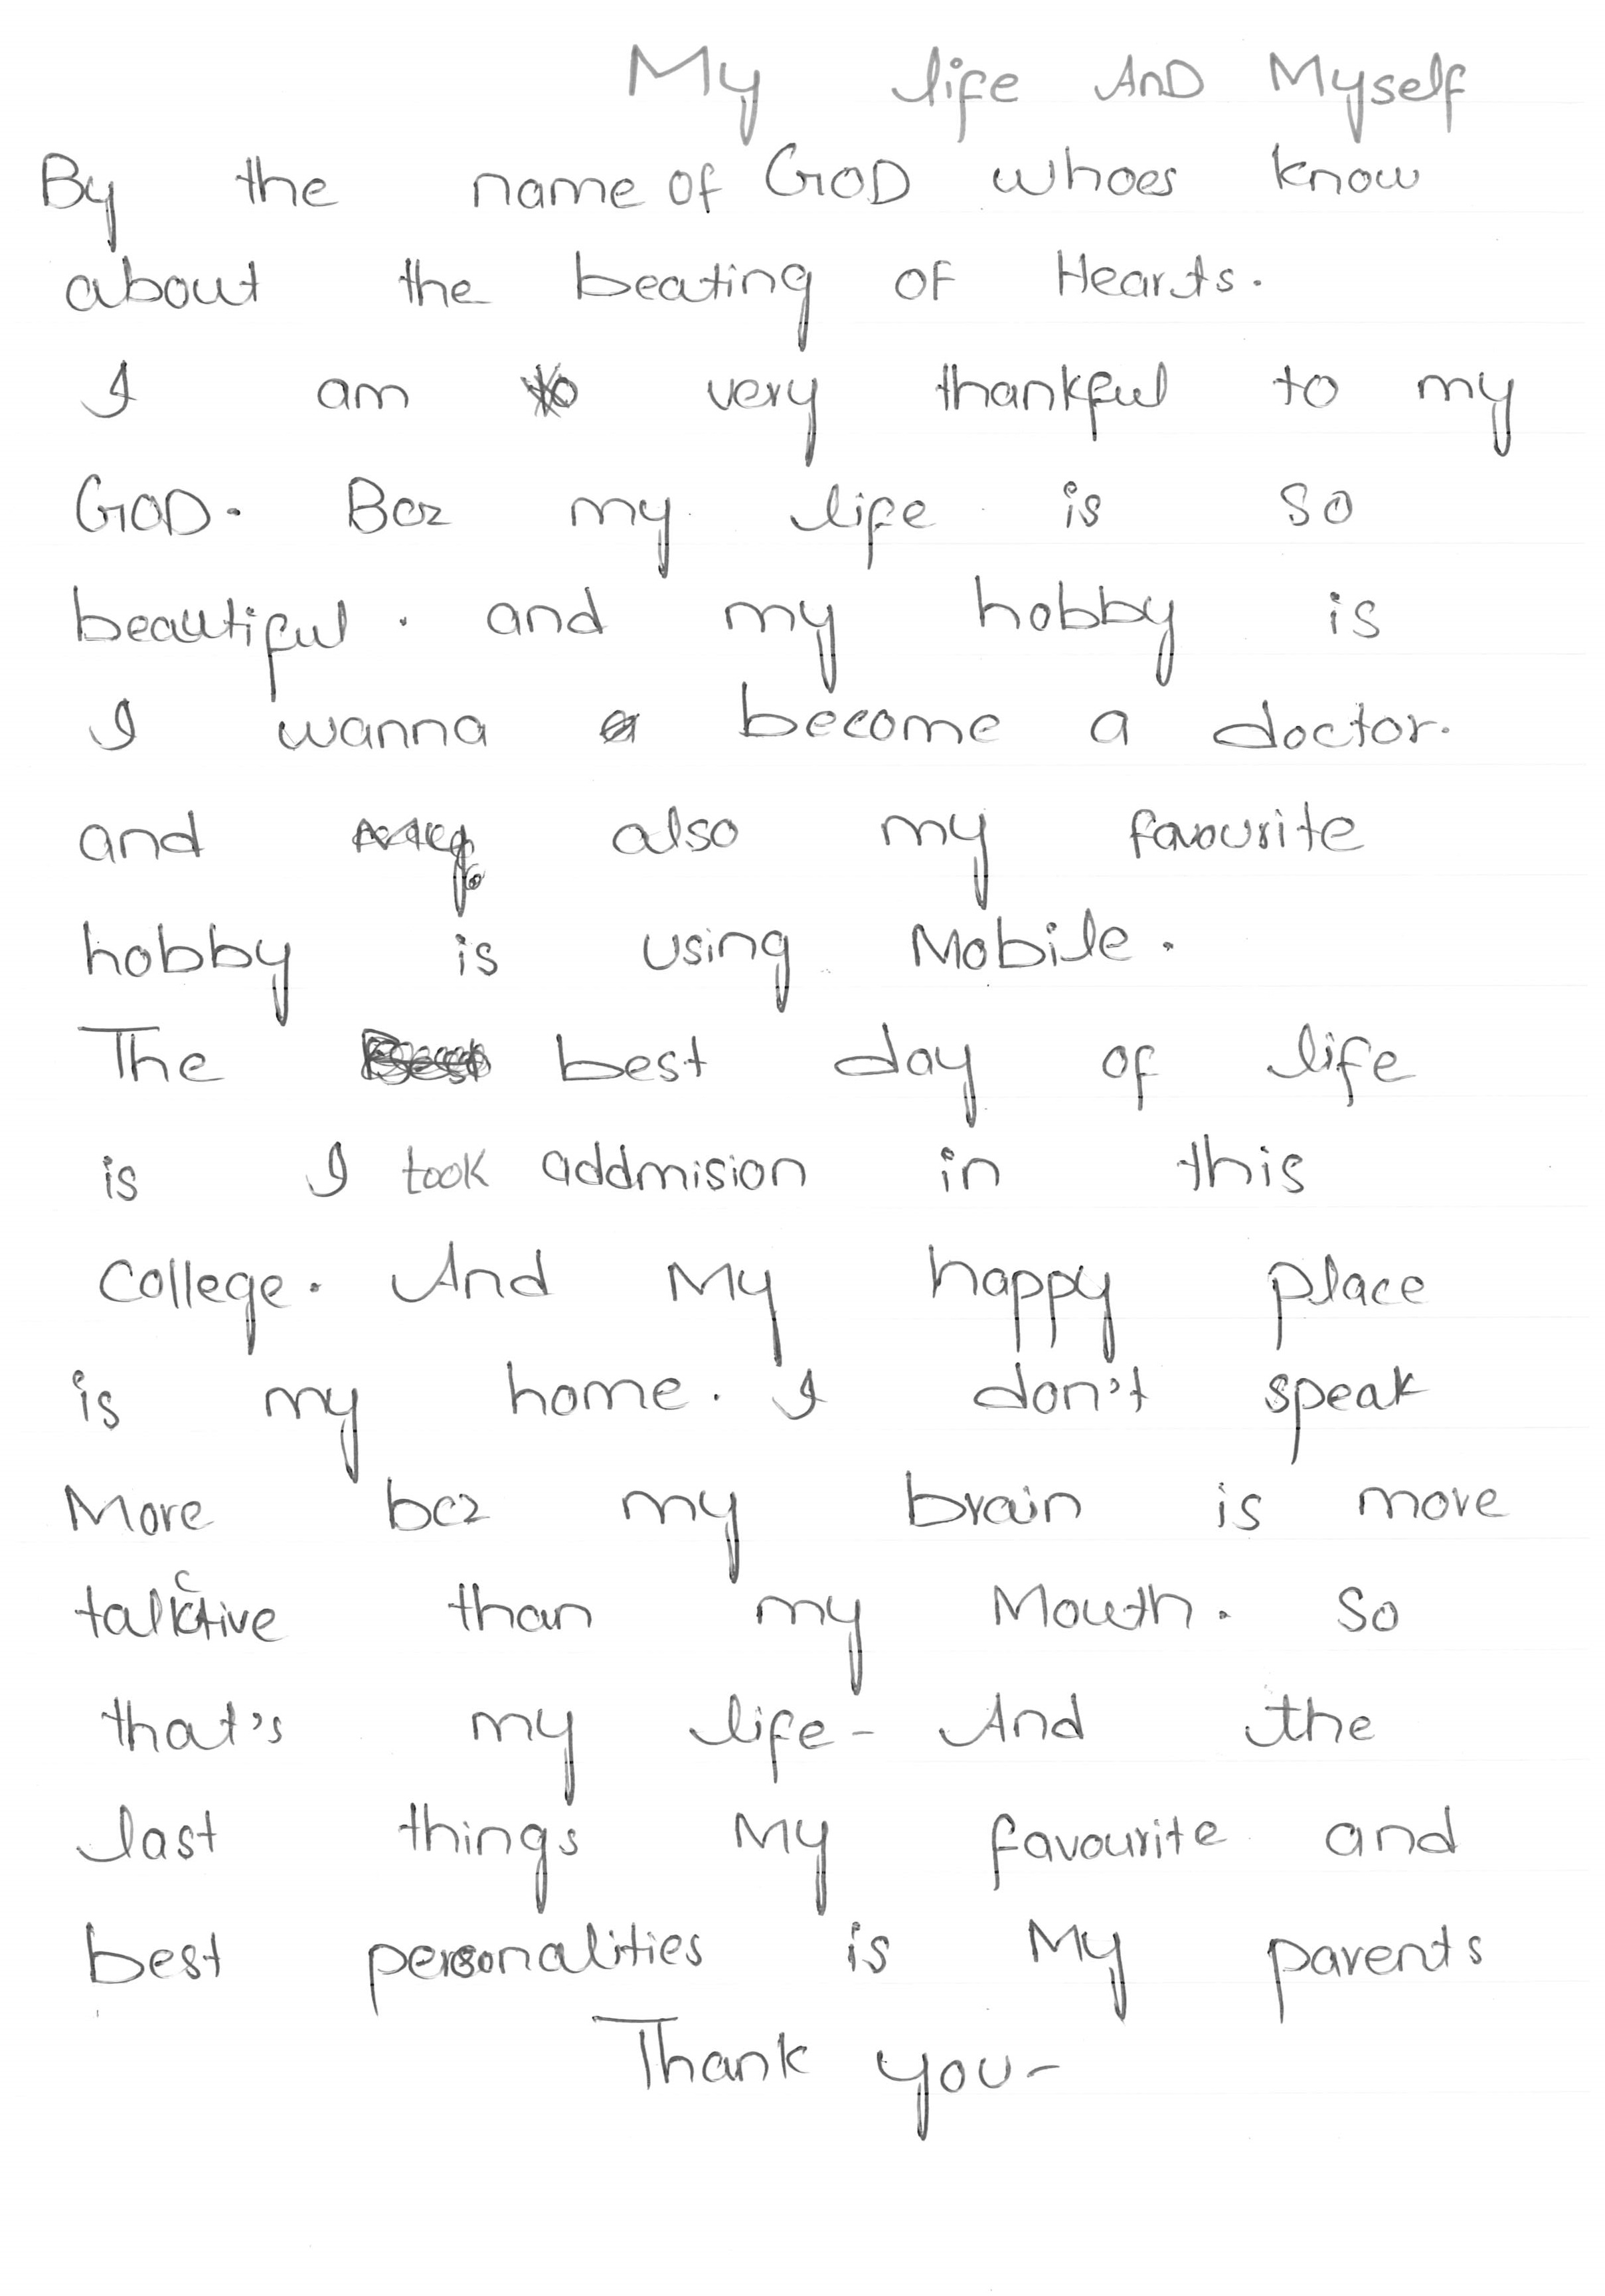 My life AND Myself
By the name of GOD whoes know
about the beating of Hearts.
I am very thankful to my
GOD. Bcz my life is so
beautiful. and my hobby is
I wanna become a doctor.
and also my favourite
hobby is using Mobile.
The best day of life
is I took addmision in this
College. And My happy place
is my home. I don't speak
More bcz my brain is more
talkctive than my Mouth. So
that's my life- And the
last things My favourite and
best personalities is My parents
Thank you-